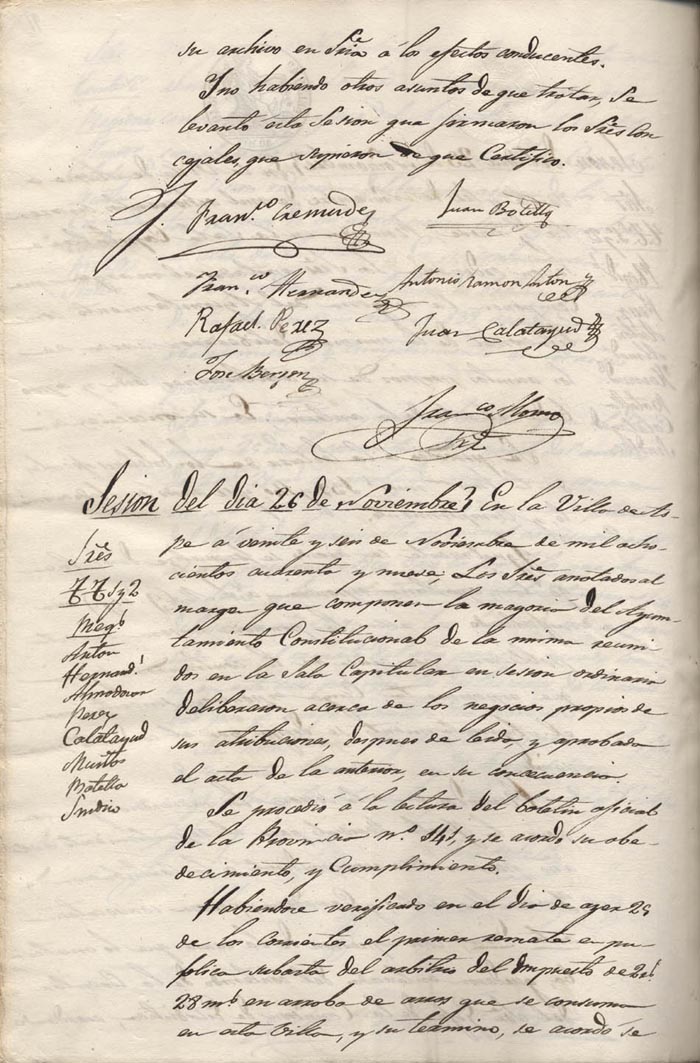 su archivo en Sría á los efectos conducentes.
Y no habiendo otros asuntos de que tratar, se
levanto esta Sesion que firmaron los Sres Con
cejales, que supieron de que Certifico.
Fran.co Cremades
Juan Botella
Fran.co Hernandez
Antonio Ramon Anton
Rafael Perez
Juan Calatayud
Jose Berjon
Fran.co
Srio
Sesion del dia 26 de Noviembre, En la Villa de As-
pe á veinte y seis de Noviembre de mil ocho-
cientos cuarenta y nueve, Los Sres anotados al
margen que componen la mayoria del Ayun-
tamiento Constitucional de la misma reuni
dos en la Sala Capitular en sesion ordinaria
deliberaron acerca de los negocios propios de
sus atribuciones, despues de leida, y aprobada
el acta de la anterior, en su concecuencia.
Se procedió á la lectura del boletin oficial
de la Provincia n.o 141, y se acordo su obe-
decimiento, y Cumplimiento.
Habiendose verificado en el dia de ayer 25
de los corrientes el primer remate en pu-
plica subasta del arbitrio del Impuesto de
28 ms en arroba de arros que se consuma
en esta Villa, y su termino, se acordo se
Sres
TT 1 y 2
Anton
Hernand.
Almodovar
Perez
Calatayud
Muñtos
Botella
Sindico